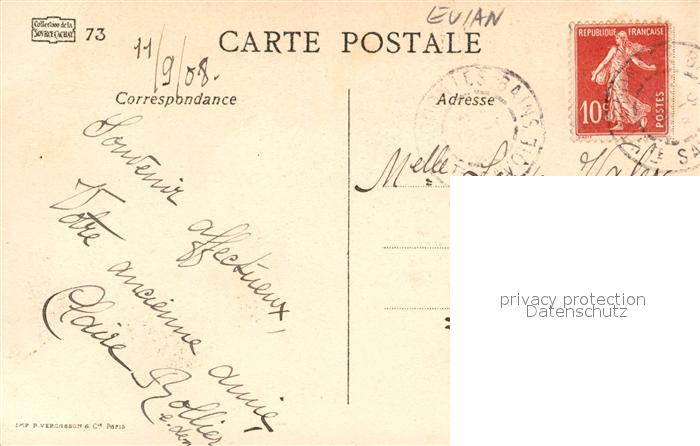 Collection de la
SOURCE CACHAT
73
EVIAN
CARTE POSTALE
11/9/08.
Correspondance
Adresse
REPUBLIQUE FRANÇAISE
10c
POSTES
LES BAINS
VOIE
Melle
Souvenir affectueux,
Votre ancienne amie,
Claire Rollier
privacy protection
Datenschutz
IMP. P. VERGASSON & Cie PARIS